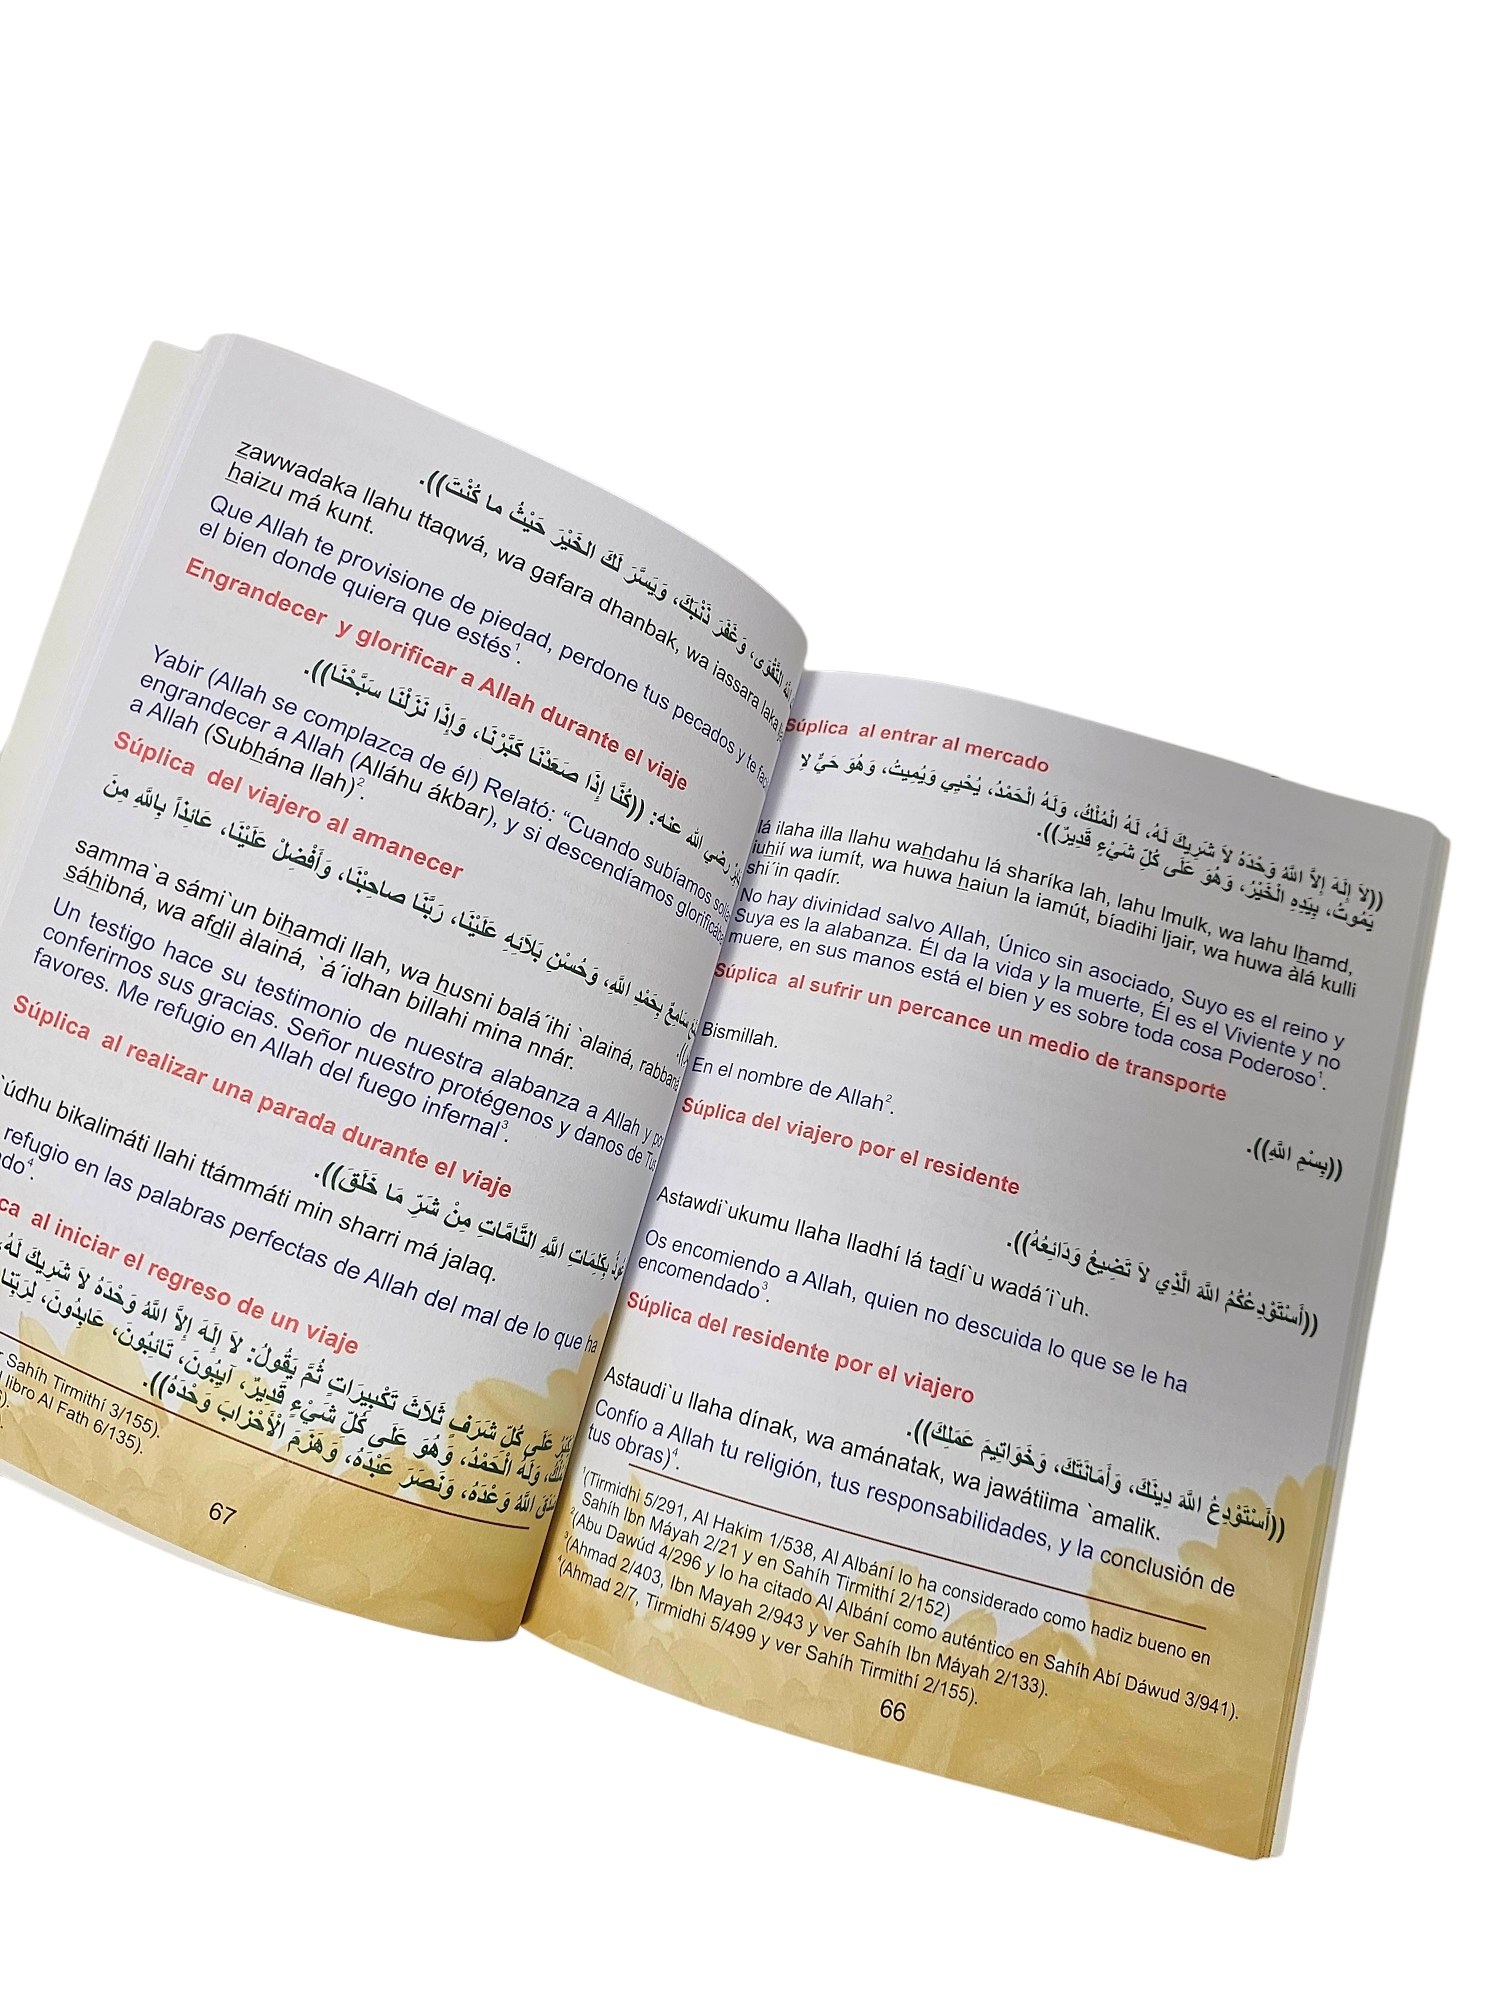 Súplica al entrar al mercado
((لاَ إِلَهَ إِلاَّ اللَّهُ وَحْدَهُ لاَ شَرِيكَ لَهُ، لَهُ الْمُلْكُ، وَلَهُ الْحَمْدُ، يُحْيِي وَيُمِيتُ، وَهُوَ حَيٌّ لاَ
يَمُوتُ، بِيَدِهِ الْخَيْرُ، وَهُوَ عَلَى كُلِّ شَيْءٍ قَدِيرٌ)).
lá ilaha illa llahu wahdahu lá sharíka lah, lahu lmulk, wa lahu lhamd,
iuhií wa iumít, wa huwa haiun la iamút, bíadihi ljair, wa huwa àlá kulli
shi´in qadír.
No hay divinidad salvo Allah, Único sin asociado, Suyo es el reino y
Suya es la alabanza. Él da la vida y la muerte, Él es el Viviente y no
muere, en sus manos está el bien y es sobre toda cosa Poderoso1.
Súplica al sufrir un percance un medio de transporte
((بِسْمِ اللَّهِ)).
Bismillah.
En el nombre de Allah2.
Súplica del viajero por el residente
((أَسْتَوْدِعُكُمُ اللَّهَ الَّذِي لاَ تَضِيعُ وَدَائِعُهُ)).
Astawdi`ukumu llaha lladhí lá tadí`u wadá´i`uh.
Os encomiendo a Allah, quien no descuida lo que se le ha
encomendado3.
Súplica del residente por el viajero
((أَسْتَوْدِعُ اللَّهَ دِينَكَ، وَأَمَانَتَكَ، وَخَوَاتِيمَ عَمَلِكَ)).
Astaudi`u llaha dínak, wa amánatak, wa jawátiima `amalik.
Confío a Allah tu religión, tus responsabilidades, y la conclusión de
tus obras)4.
1(Tirmidhi 5/291, Al Hakim 1/538, Al Albání lo ha considerado como hadiz bueno en
Sahíh Ibn Máyah 2/21 y en Sahíh Tirmithí 2/152)
2(Abu Dawúd 4/296 y lo ha citado Al Albání como auténtico en Sahíh Abí Dáwud 3/941).
3(Ahmad 2/403, Ibn Mayah 2/943 y ver Sahíh Ibn Máyah 2/133).
4(Ahmad 2/7, Tirmidhi 5/499 y ver Sahíh Tirmithí 2/155).
66
اللَّهُ التَّقْوَى، وَغَفَرَ ذَنْبَكَ، وَيَسَّرَ لَكَ الخَيْرَ حَيْثُ ما كُنْتَ)).
zawwadaka llahu ttaqwá, wa gafara dhanbak, wa iassara laka
haizu má kunt.
Que Allah te provisione de piedad, perdone tus pecados y te
el bien donde quiera que estés1.
Engrandecer y glorificar a Allah durante el viaje
رضي الله عنه: ((كُنَّا إِذَا صَعَدْنَا كَبَّرْنَا، وَإِذَا نَزَلْنَا سَبَّحْنَا)).
Yabir (Allah se complazca de él) Relató: “Cuando subíamos
engrandecer a Allah (Alláhu ákbar), y si descendíamos
a Allah (Subhána llah)2.
Súplica del viajero al amanecer
سَامِعٌ بِحَمْدِ اللَّهِ، وَحُسْنِ بَلاَئِهِ عَلَيْنَا، رَبَّنَا صَاحِبْنَا، وَأَفْضِلْ عَلَيْنَا، عَائِذاً بِاللَّهِ مِنَ
samma`a sámi`un bihamdi llah, wa husni balá´ihi `alainá, rabbaná
sáhibná, wa afdil àlainá, `á´idhan billahi mina nnár.
Un testigo hace su testimonio de nuestra alabanza a Allah y
conferirnos sus gracias. Señor nuestro protégenos y danos de Tus
favores. Me refugio en Allah del fuego infernal3.
Súplica al realizar una parada durante el viaje
بِكَلِمَاتِ اللَّهِ التَّامَّاتِ مِنْ شَرِّ مَا خَلَقَ)).
`údhu bikalimáti llahi ttámmáti min sharri má jalaq.
refugio en las palabras perfectas de Allah del mal de lo que ha
al iniciar el regreso de un viaje
عَلَى كُلِّ شَرَفٍ ثَلاَثَ تَكْبِيرَاتٍ ثُمَّ يَقُولُ: لاَ إِلَهَ إِلاَّ اللَّهُ وَحْدَهُ لاَ شَرِيكَ لَهُ
وَلَهُ الْحَمْدُ، وَهُوَ عَلَى كُلِّ شَيْءٍ قَدِيرٌ، آيِبُونَ، تَائِبُونَ، عَابِدُونَ، لِرَبِّنَا
اللَّهُ وَعْدَهُ، وَنَصَرَ عَبْدَهُ، وَهَزَمَ الأَحْزَابَ وَحْدَهُ)).
Sahíh Tirmithí 3/155).
libro Al Fath 6/135).
67